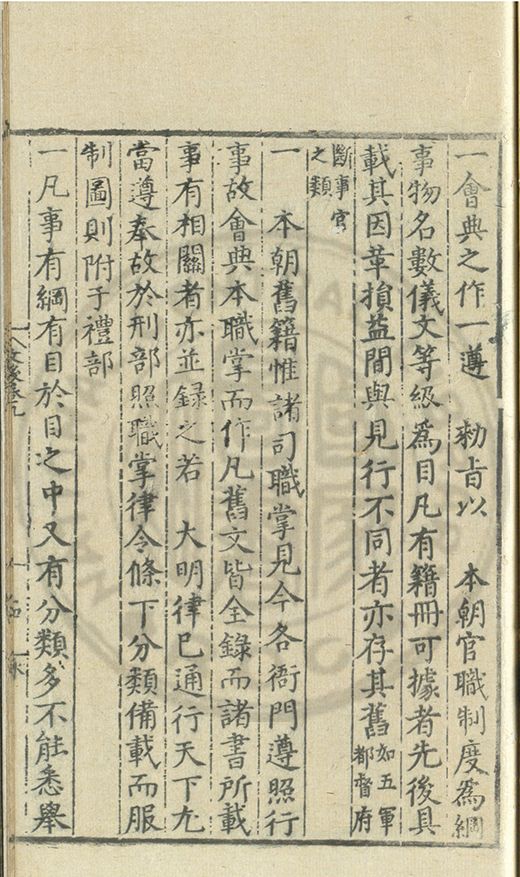 一會典之作一遵　勑旨以　本朝官職制度為綱
事物名數儀文等級為目凡有籍冊可據者先後具
載其因革損益間與見行不同者亦存其舊如五軍都督府
斷事官之類
一　本朝舊籍惟諸司職掌見今各衙門遵照行
事故會典本職掌而作凡舊文皆全錄而諸書所載
事有相關者亦並錄之若　大明律已通行天下尤
當遵奉故於刑部照職掌律令條下分類備載而服
制圖則附于禮部
一凡事有綱有目於目之中又有分類多不能悉舉